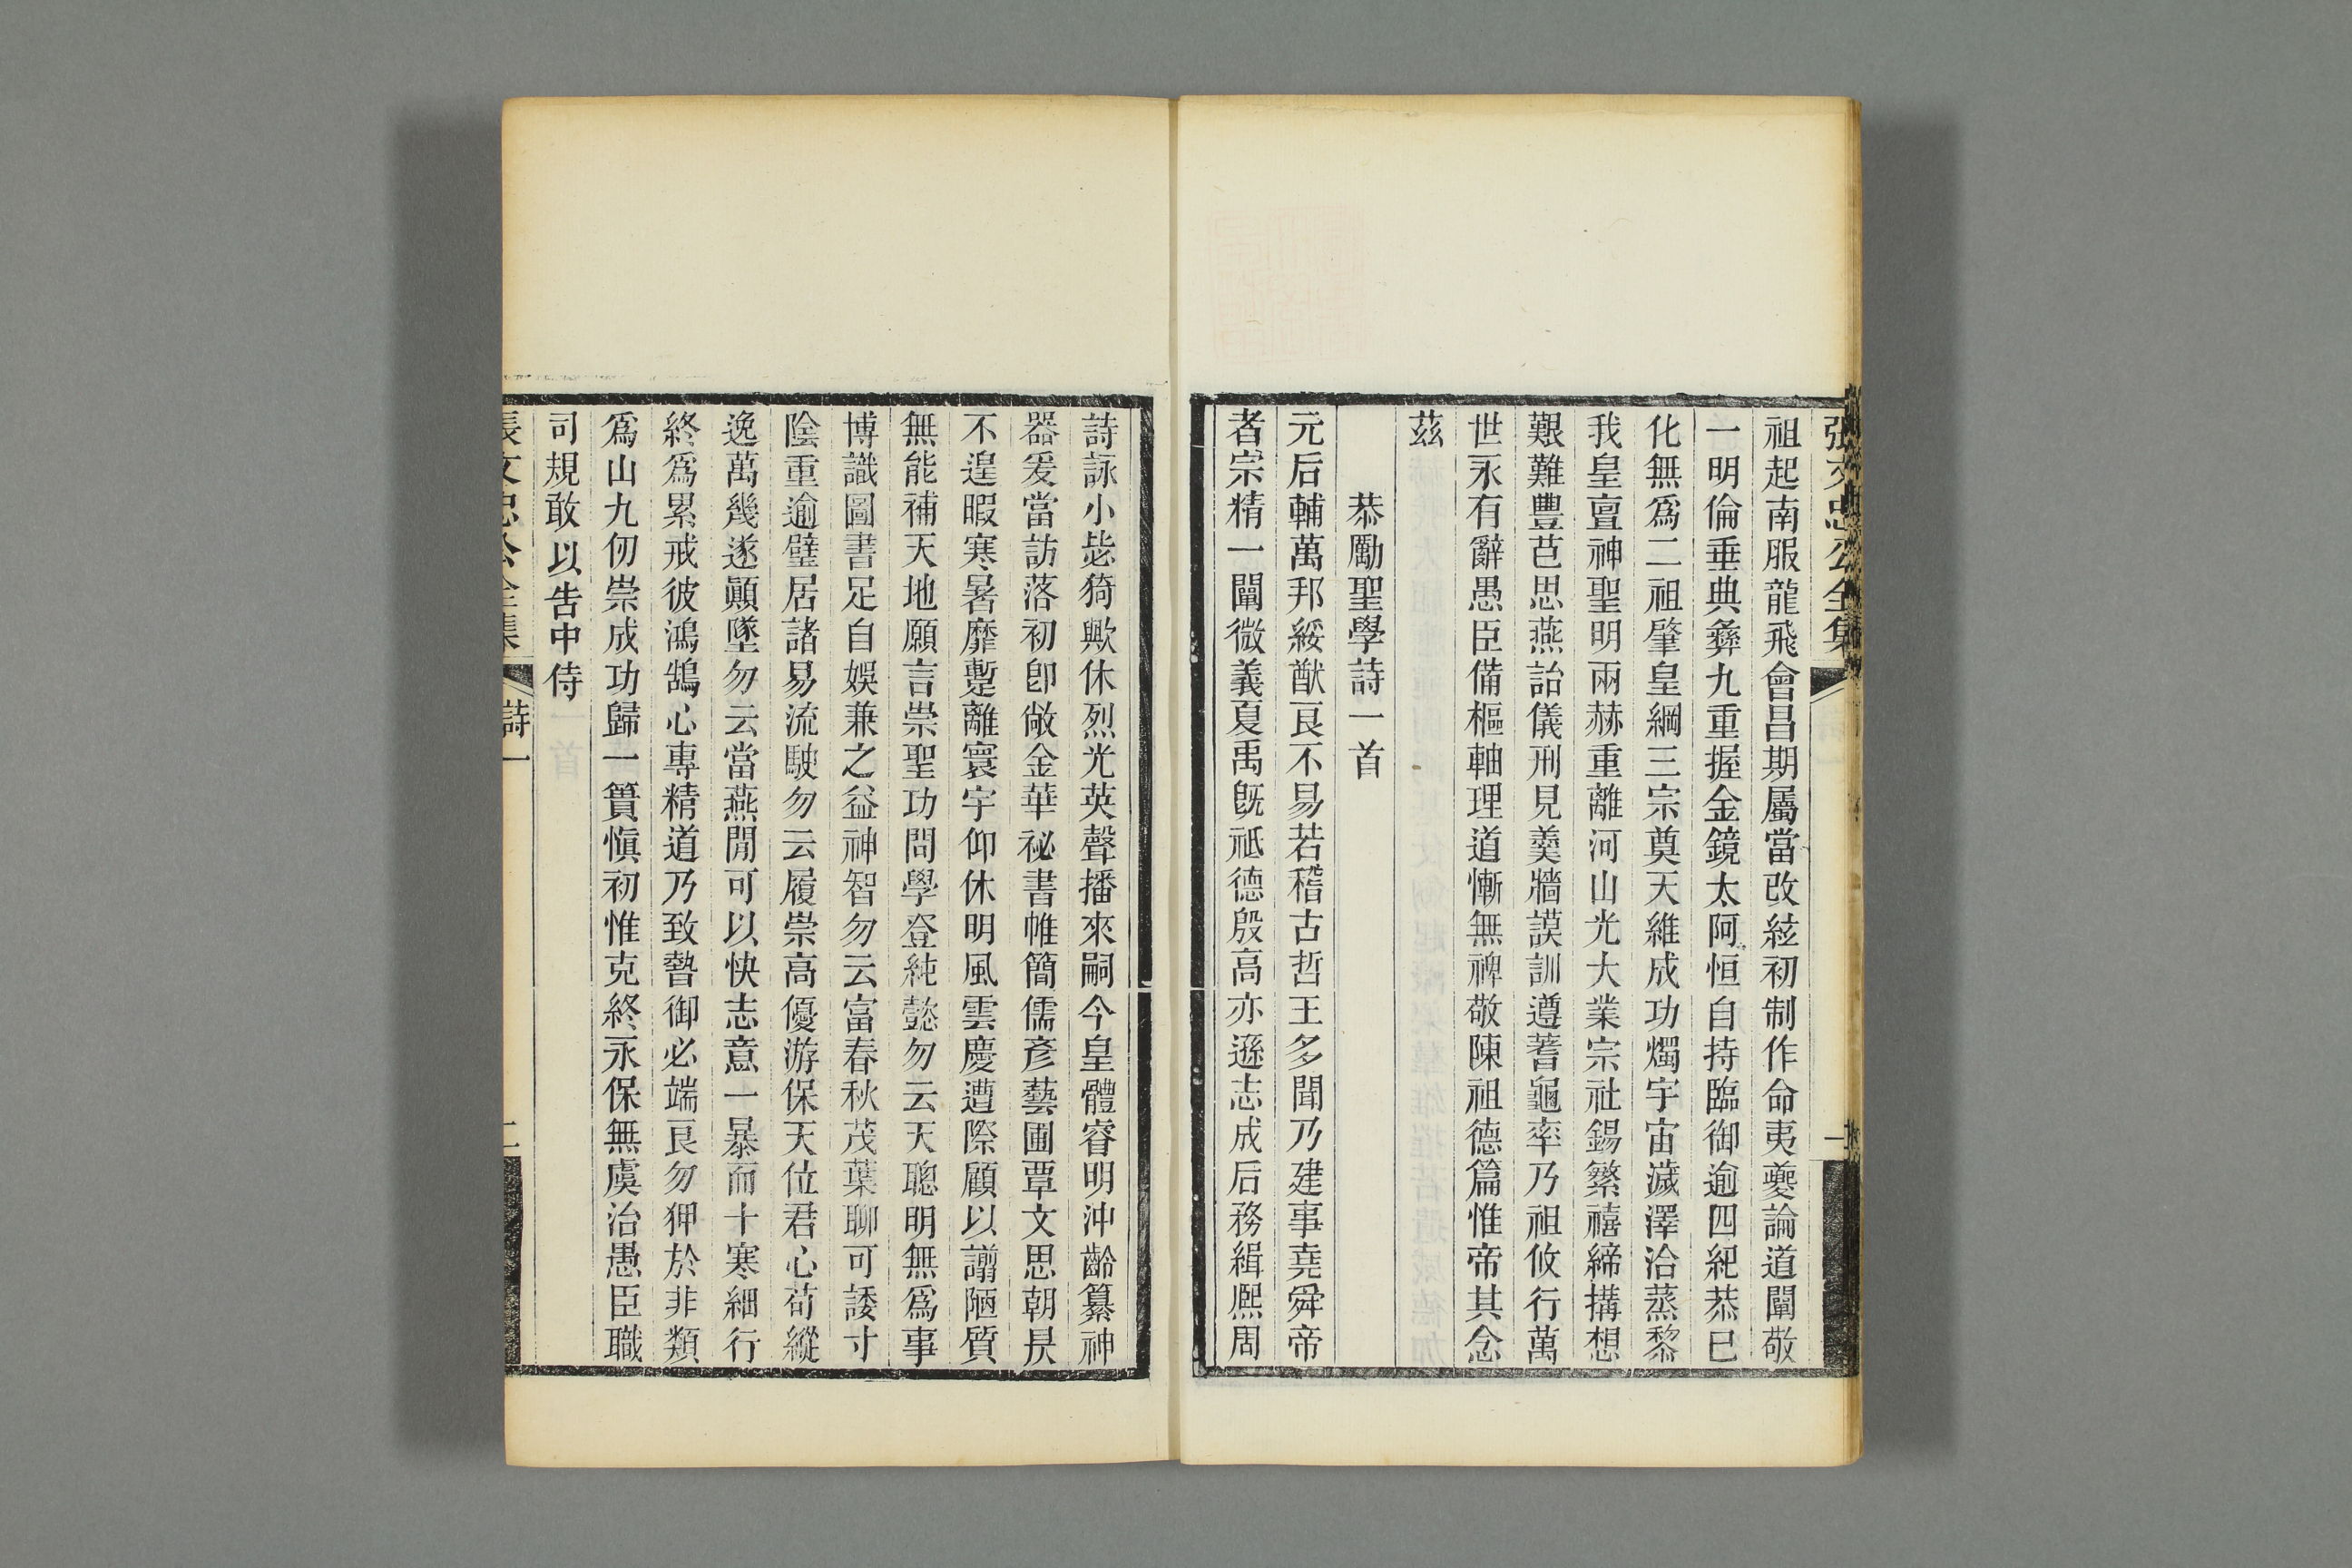 張文忠公全集
祖起南服龍飛會昌期屬當改絃初制作命夷夔論道闡敬
一明倫垂典彝九重握金鏡太阿恒自持臨御逾四紀恭已
化無爲二祖肇皇綱三宗奠天維成功燭宇宙濊澤洽蒸黎
我皇亶神聖明兩赫重離河山光大業宗社錫繁禧締搆想
艱難豐芑思燕詒儀刑見羹牆謨訓遵蓍龜率乃祖攸行萬
世永有辭愚臣備樞軸理道慚無裨敬陳祖德篇惟帝其念
茲
恭勵聖學詩一首
元后輔萬邦綏猷良不易若稽古哲王多聞乃建事堯舜帝
者宗精一闡微義夏禹旣祗德殷高亦遜志成后務緝熙周
詩詠小毖猗歟休烈光英聲播來嗣今皇體睿明沖齡纂神
器爰當訪落初卽敞金華祕書帷簡儒彥藝圃覃文思朝昃
不遑暇寒暑靡蹔離寰宇仰休明風雲慶遭際顧以譾陋質
無能補天地願言崇聖功問學登純懿勿云天聰明無爲事
博識圖書足自娛兼之益神智勿云富春秋茂葉聊可諉寸
陰重逾璧居諸易流駛勿云履崇高優游保天位君心苟縱
逸萬幾遂顚墜勿云當燕閒可以快志意一暴而十寒細行
終爲累戒彼鴻鵠心專精道乃致暬御必端良勿狎於非類
爲山九仞崇成功歸一簣愼初惟克終永保無虞治愚臣職
司規敢以告中侍
張文忠公全集 詩一 二